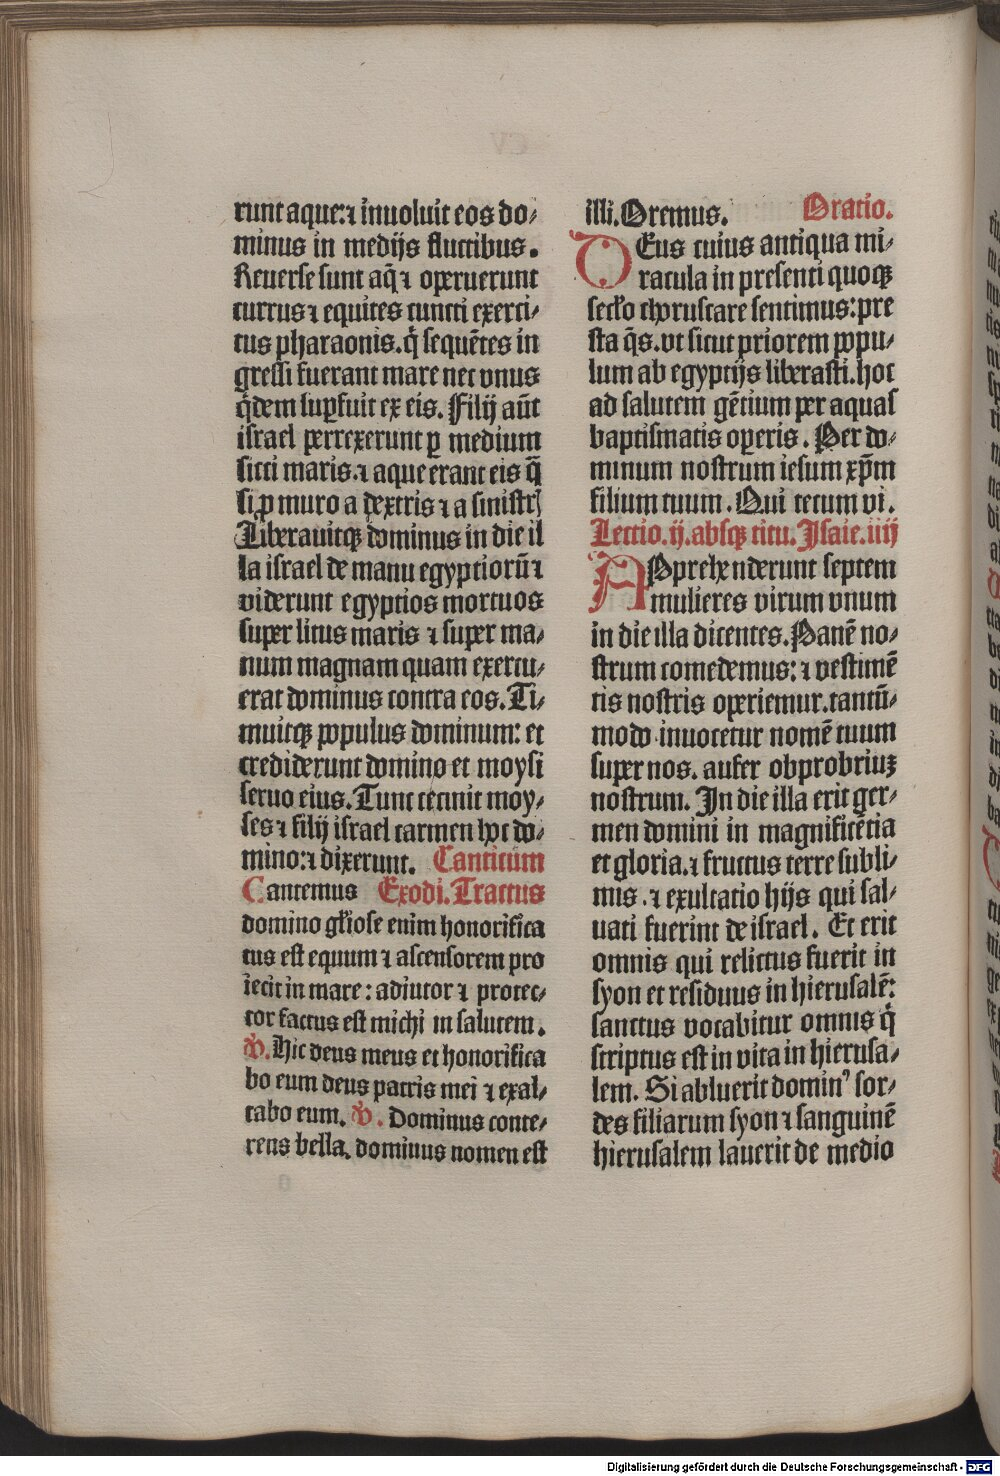 runt aque:⁊ inuoluit eos do/
minus in medijs fluctibus.
Reuerse sunt aq̄ ⁊ operuerunt
currus ⁊ equites cuncti exerci/
tus pharaonis.q̇ sequētes in
gressi fuerant mare nec vnus
q̇dem suꝑfuit ex eis. Filij aūt
israel perrexerunt ꝑ medium
sicci maris.⁊ aque erant eis q̄
si ꝓ muro a dextris ⁊ a sinistrꝭ
Liberauitqꝫ dominus in die il
la israel de manu egyptiorū ⁊
viderunt egyptios mortuos
super litus maris ⁊ super ma/
num magnam quam exercu/
erat dominus contra eos. Ti/
muitqꝫ populus dominum: et
crediderunt domino et moysi
seruo eius. Tunc cecinit moy/
ses ⁊ filij israel carmen hoc do/
mino:⁊ dixerunt. Canticum
Cantemus Exodi. Tractus
domino gl'iose enim honorifica
tus est equum ⁊ ascensorem pro
iecit in mare: adiutor ⁊ protec/
tor factus est michi in salutem.
V. Hic deus meus et honorifica
bo eum deus patris mei ⁊ exal/
tabo eum. V. Dominus conte/
rens bella. dominus nomen est
illi. Oremus. Oratio.
DEus cuius antiqua mi/
racula in presenti quoqꝫ
secl'o choruscare sentimus: pre
sta q̄s. vt sicut priorem popu/
lum ab egyptijs liberasti. hoc
ad salutem gētium per aquas
baptismatis operis. Per do/
minum nostrum iesum xp̄m
filium tuum. Qui tecum vi.
Lectio.ij.absqꝫ titu. Isaie.iiij
APprehenderunt septem
mulieres virum vnum
in die illa dicentes. Panē no/
strum comedemus: ⁊ vestimē
tis nostris operiemur. tantū/
modo inuocetur nomē tuum
super nos. aufer obprobriuꝫ
nostrum. In die illa erit ger/
men domini in magnificētia
et gloria.⁊ fructus terre subli/
mis. ⁊ exultatio hijs qui sal/
uati fuerint de israel. Et erit
omnis qui relictus fuerit in
syon et residuus in hierusalē:
sanctus vocabitur omnis q̇
scriptus est in vita in hierusa/
lem. Si abluerit dominꝰ sor/
des filiarum syon ⁊ sanguinē
hierusalem lauerit de medio
Digitalisierung gefördert durch die Deutsche Forschungsgemeinschaft - DFG